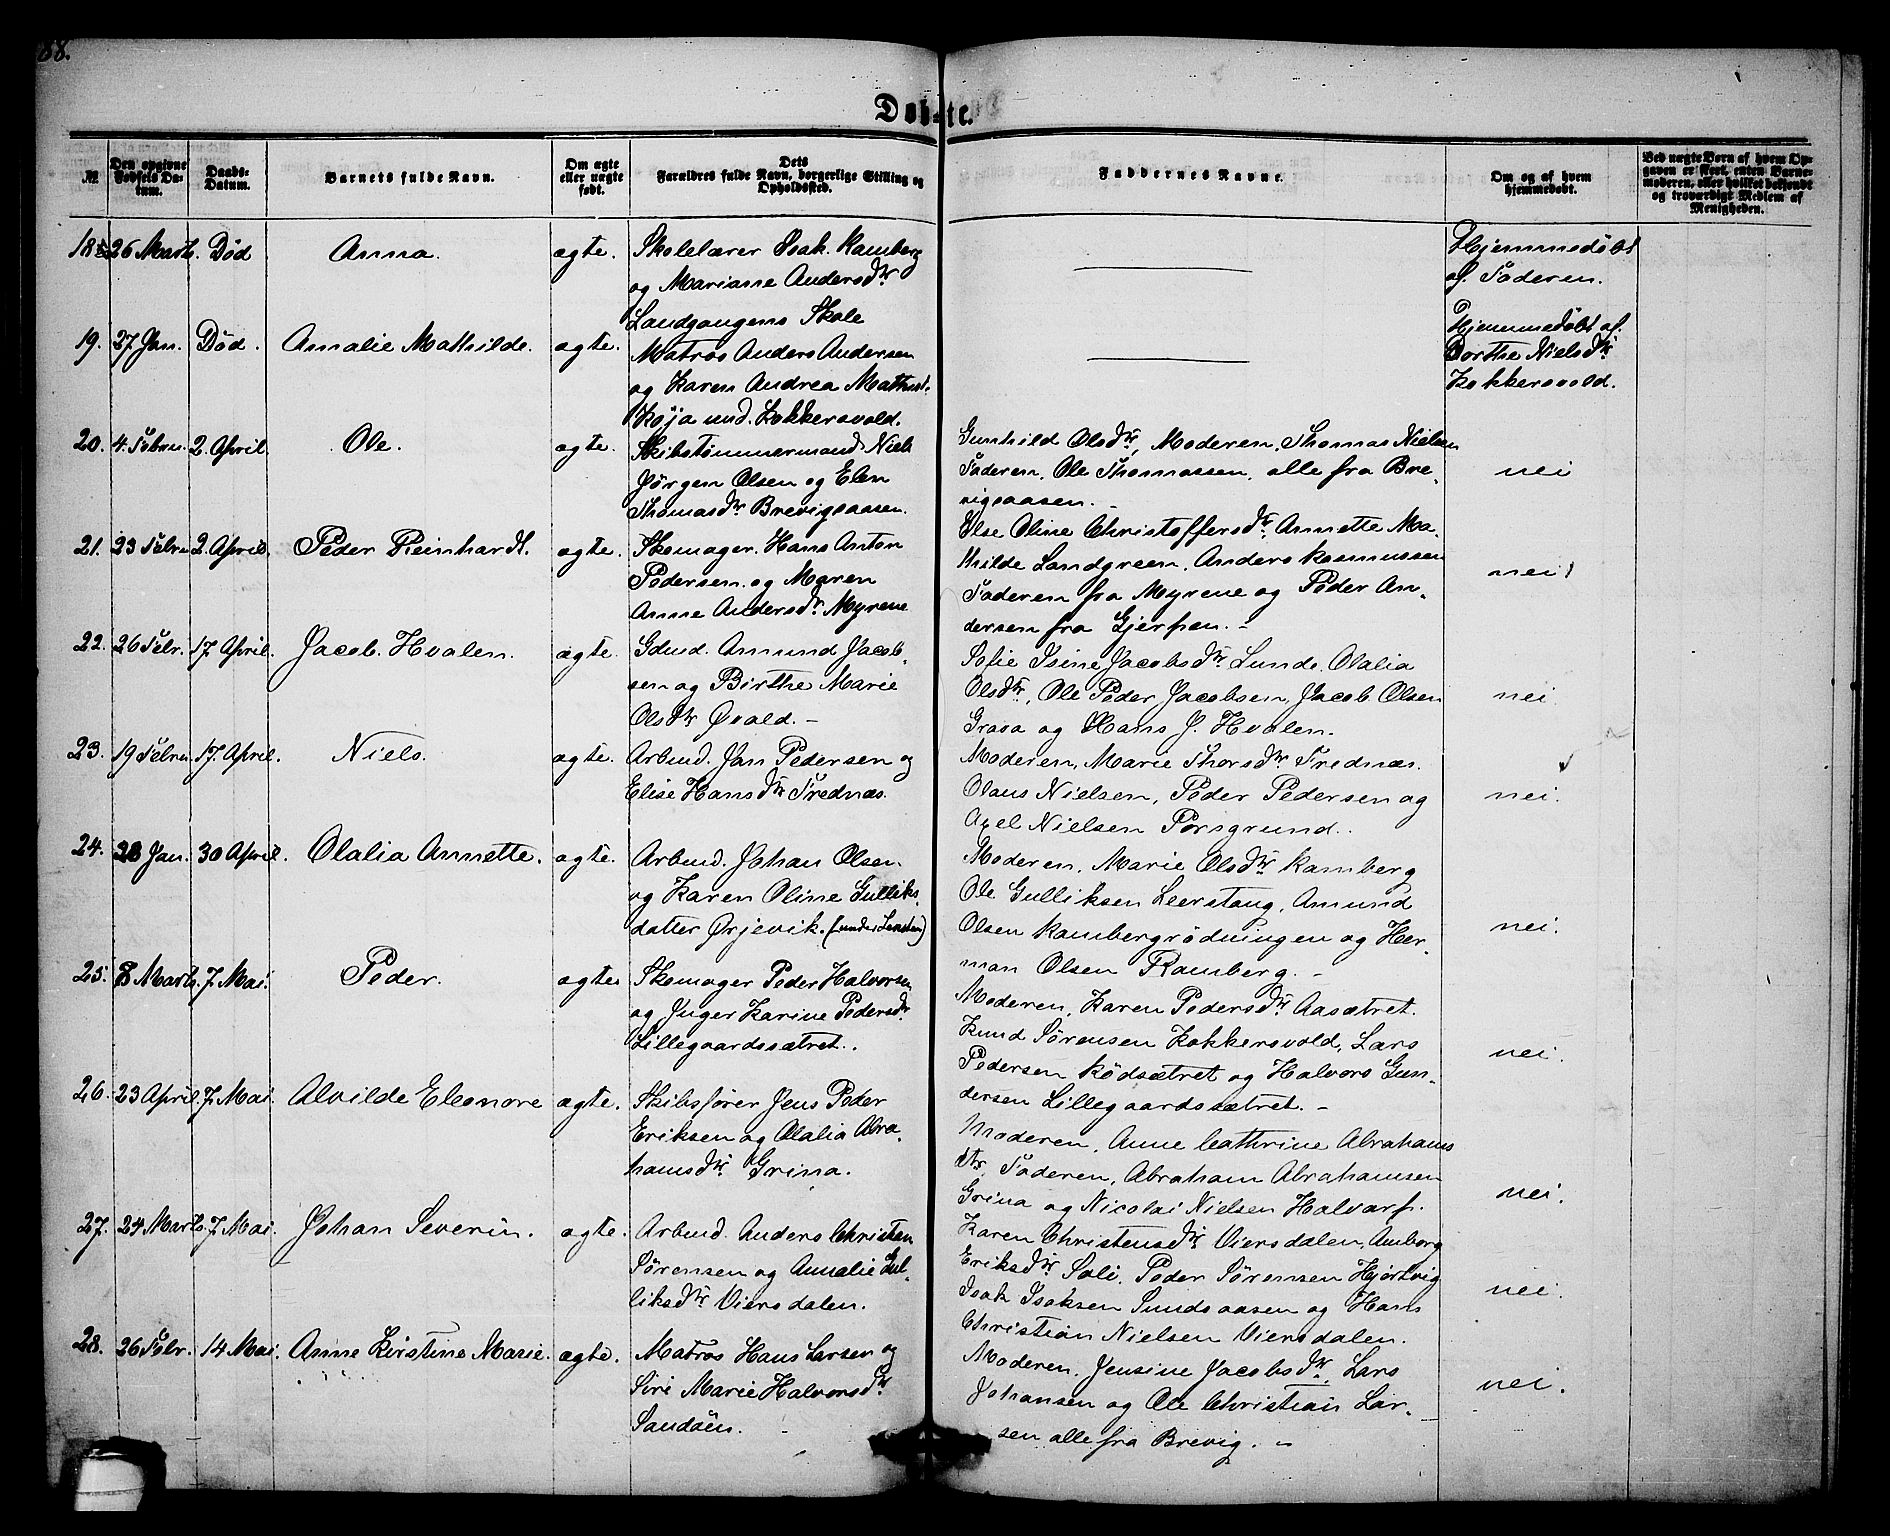 88.
Døbte.
№
Den opgivne Fødsels Datum.
Daabs-Datum.
Barnets fulde Navn.
Om ægte eller uægte født.
Dets Forældres fulde Navn, borgerlige Stilling og Opholdssted.
Faddernes Navne.
Om og af hvem hjemmedøbt.
Ved uægte Børn af hvem Opgaven er skeet, enten Barnemoderen, eller hvilket bekjendt og troværdigt Medlem af Menigheden.
18 26 Marts. Død Anna. ægte. Skolelærer Isak Ramberg
og Marianne Andersdtr
Landgangens Skole
Hjemmedøbt
af Faderen.
19. 27 Jan. Død. Amalie Mathilde. ægte. Matros Anders Andersen
og Karen Andrea Mathis
Køja und. Kokkersvold.
Hjemmedøbt af
Dorthe Nielsdtr
Kokkersvold.
20. 4. Febru. 2. April. Ole. ægte. Skibstømmermand Niels
Jørgen Olsen og Elen
Thomasdtr Brevigsaasen.
Gunhild Olsdtr, Moderen, Thomas Nielsen
Faderen, Ole Thomassen, alle fra Bre-
vigsaasen.
nei
21. 23 Febru 2. April. Peder Reinhardt. ægte. Skomager. Hans Anton
Pedersen og Maren
Anne Andersdtr Myrene
Else Oline Christoffersdtr Annette Ma-
thilde Landgreen, Anders Rasmussen
Faderen fra Myrene og Peder An-
dersen fra Gjerpen. -
nei
22. 26 Febr. 17. April. Jacob Hvalen. ægte. Gdmd. Amund Jacob-
sen og Birthe Marie
Olsdtr Øvald. -
Sofie Isine Jacobsdtr Lunde, Olalia
Olsdtr, Ole Peder Jacobsen, Jacob Olsen
Grava og Hans J. Hvalen.
nei.
23. 19 Febru. 17. April. Niels. ægte. Arbmd. Jan Pedersen og
Elise Hansdtr Frednæs.
Moderen, Marie Thorsdtr Frednæs.
Olaus Nielsen, Peder Pedersen og
Axel Nielsen Porsgrund.
nei.
24. 28 Jan. 30 April. Olalia Annette. ægte. Arbmd. Johan Olsen.
og Karen Oline Gulliks-
datter Ørjevik. (under Lensten)
Moderen, Marie Olsdtr Ramberg
Ole Gulliksen Leerstang, Amund
Olsen Rambergrødningen og Her-
man Olsen Ramberg. -
nei.
25. 8 Marts. 7. Mai. Peder. ægte Skomager Peder Halvorsen
og Inger Karine Pedersdtr.
Lillegaardssætret.
Moderen, Karen Pedersdtr Aasætret.
Knud Sørensen Kokkersvold, Lars
Pedersen Rødsætret og Halvors Gun-
dersen Lillegaardssætret. -
nei.
26. 23 April. 7. Mai. Alvilde Eleonore ægte. Skibsfører Jens Peder
Eriksen og Olalia Abra-
hamsdtr. Grina.
Moderen, Anne Cathrine Abrahams
dtr, Faderen, Abraham Abrahamsen
Grina og Nicolai Nielsen Halvarp.
nei.
27. 24 Marts. 7. Mai. Johan Severin. ægte. Arbmd. Anders Christen
Sørensen og Annalie Gul-
liksdtr Viersdalen.
Karen Christensdtr Viersdalen, Amborg
Eriksdtr Soli, Peder Sørensen Hjortvig
Isak Isaksen Sundsaasen og Hans
Christian Nielsen Viersdalen.
nei.
28. 26 Febr. 14 Mai. Anne Kirstine Marie. ægte. Matros Hans Larsen og
Siri Marie Halvorsdtr
Sandøen.
Moderen, Jensine Jacobsdtr, Lars
Johansen og Ole Christian Lar-
sen alle fra Brevig. -
nei.